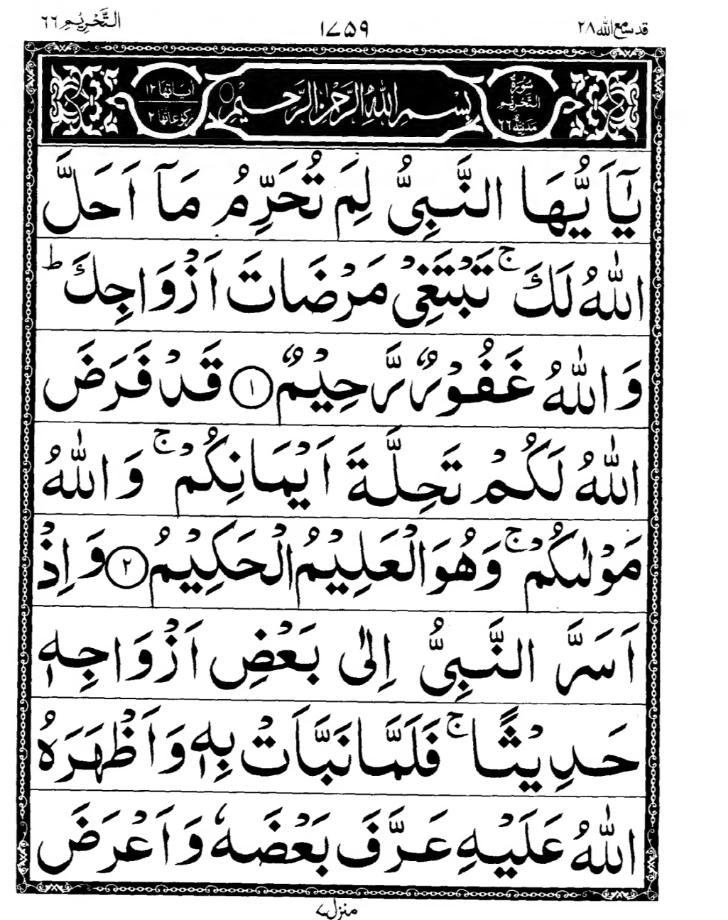 قد سمع الله ٢٨ ١٧٥٩ التحريم ٦٦
سورة التحريم مدنية ٦٦ بسم الله الرحمن الرحيم اٰياتها ١٢ ركوعاتها ٢
يٰٓاَيُّهَا النَّبِيُّ لِمَ تُحَرِّمُ مَآ اَحَلَّ
اللّٰهُ لَكَ ۚ تَبْتَغِيْ مَرْضَاتَ اَزْوَاجِكَ ؕ
وَاللّٰهُ غَفُوْرٌ رَّحِيْمٌ ١ قَدْ فَرَضَ
اللّٰهُ لَكُمْ تَحِلَّةَ اَيْمَانِكُمْ ۚ وَاللّٰهُ
مَوْلٰىكُمْ ۚ وَهُوَ الْعَلِيْمُ الْحَكِيْمُ ٢ وَاِذْ
اَسَرَّ النَّبِيُّ اِلٰى بَعْضِ اَزْوَاجِهٖ
حَدِيْثًا ۚ فَلَمَّا نَبَّاَتْ بِهٖ وَاَظْهَرَهُ
اللّٰهُ عَلَيْهِ عَرَّفَ بَعْضَهٗ وَاَعْرَضَ
منزل ٧